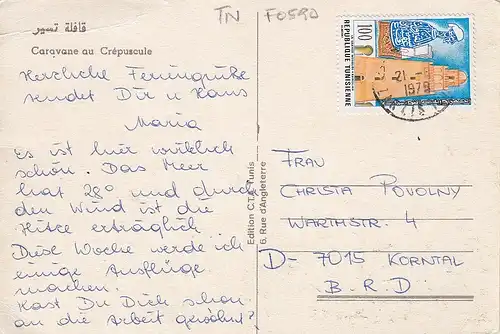 قافلة تسير
TN F0590
Caravane au Crépuscule
Herzliche Feriengrüße
sendet Dir u Hans
Maria
Es ist hier wirklich
schön. Das Meer
hat 28° und durch
den Wind ist die
Hitze erträglich
Diese Woche werde ich
einige Ausflüge
machen.
Hast Du Dich schon
an die Arbeit gewöhnt?
Edition C.T. Tunis
6, Rue d'Angleterre
REPUBLIQUE TUNISIENNE
100
21
1979
FRAU
CHRISTA POVOLNY
WARTHSTR. 4
D- 7015 KORNTAL
B.R.D.